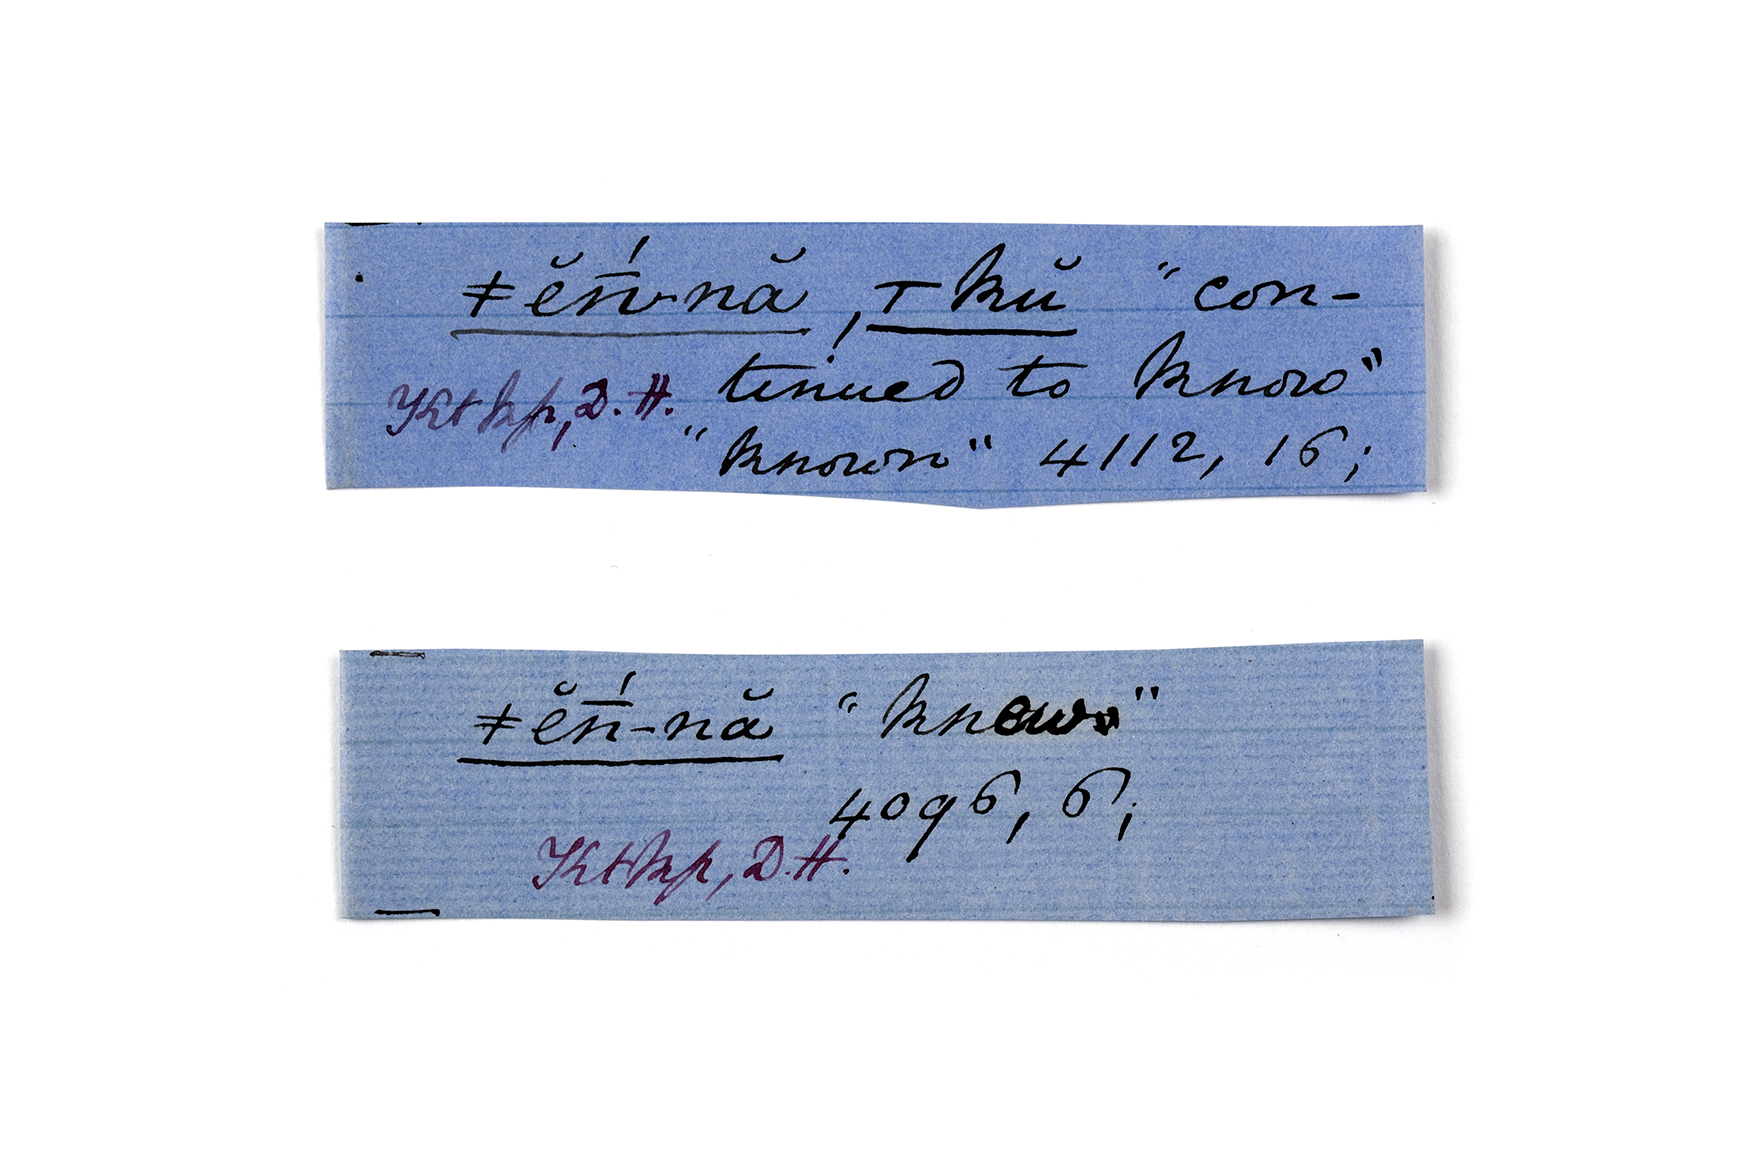 ǂĕn̄́-nă, ⊤ kŭ “con-
tinued to know”
Kt kp, D. H.
“known” 4112, 16;
ǂĕn̄́-nă “knew”
4096, 6;
Kt kp, D. H.